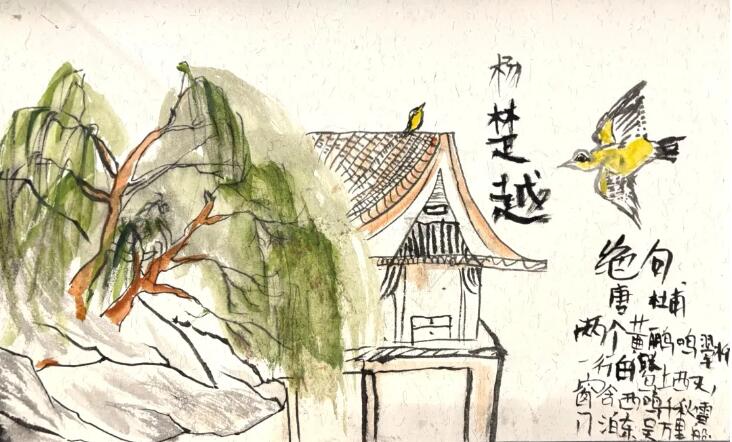 杨楚越
绝句
唐 杜甫
两个黄鹂鸣翠柳
一行白鹭上西天
窗含西千秋雪
门泊东吴万里船